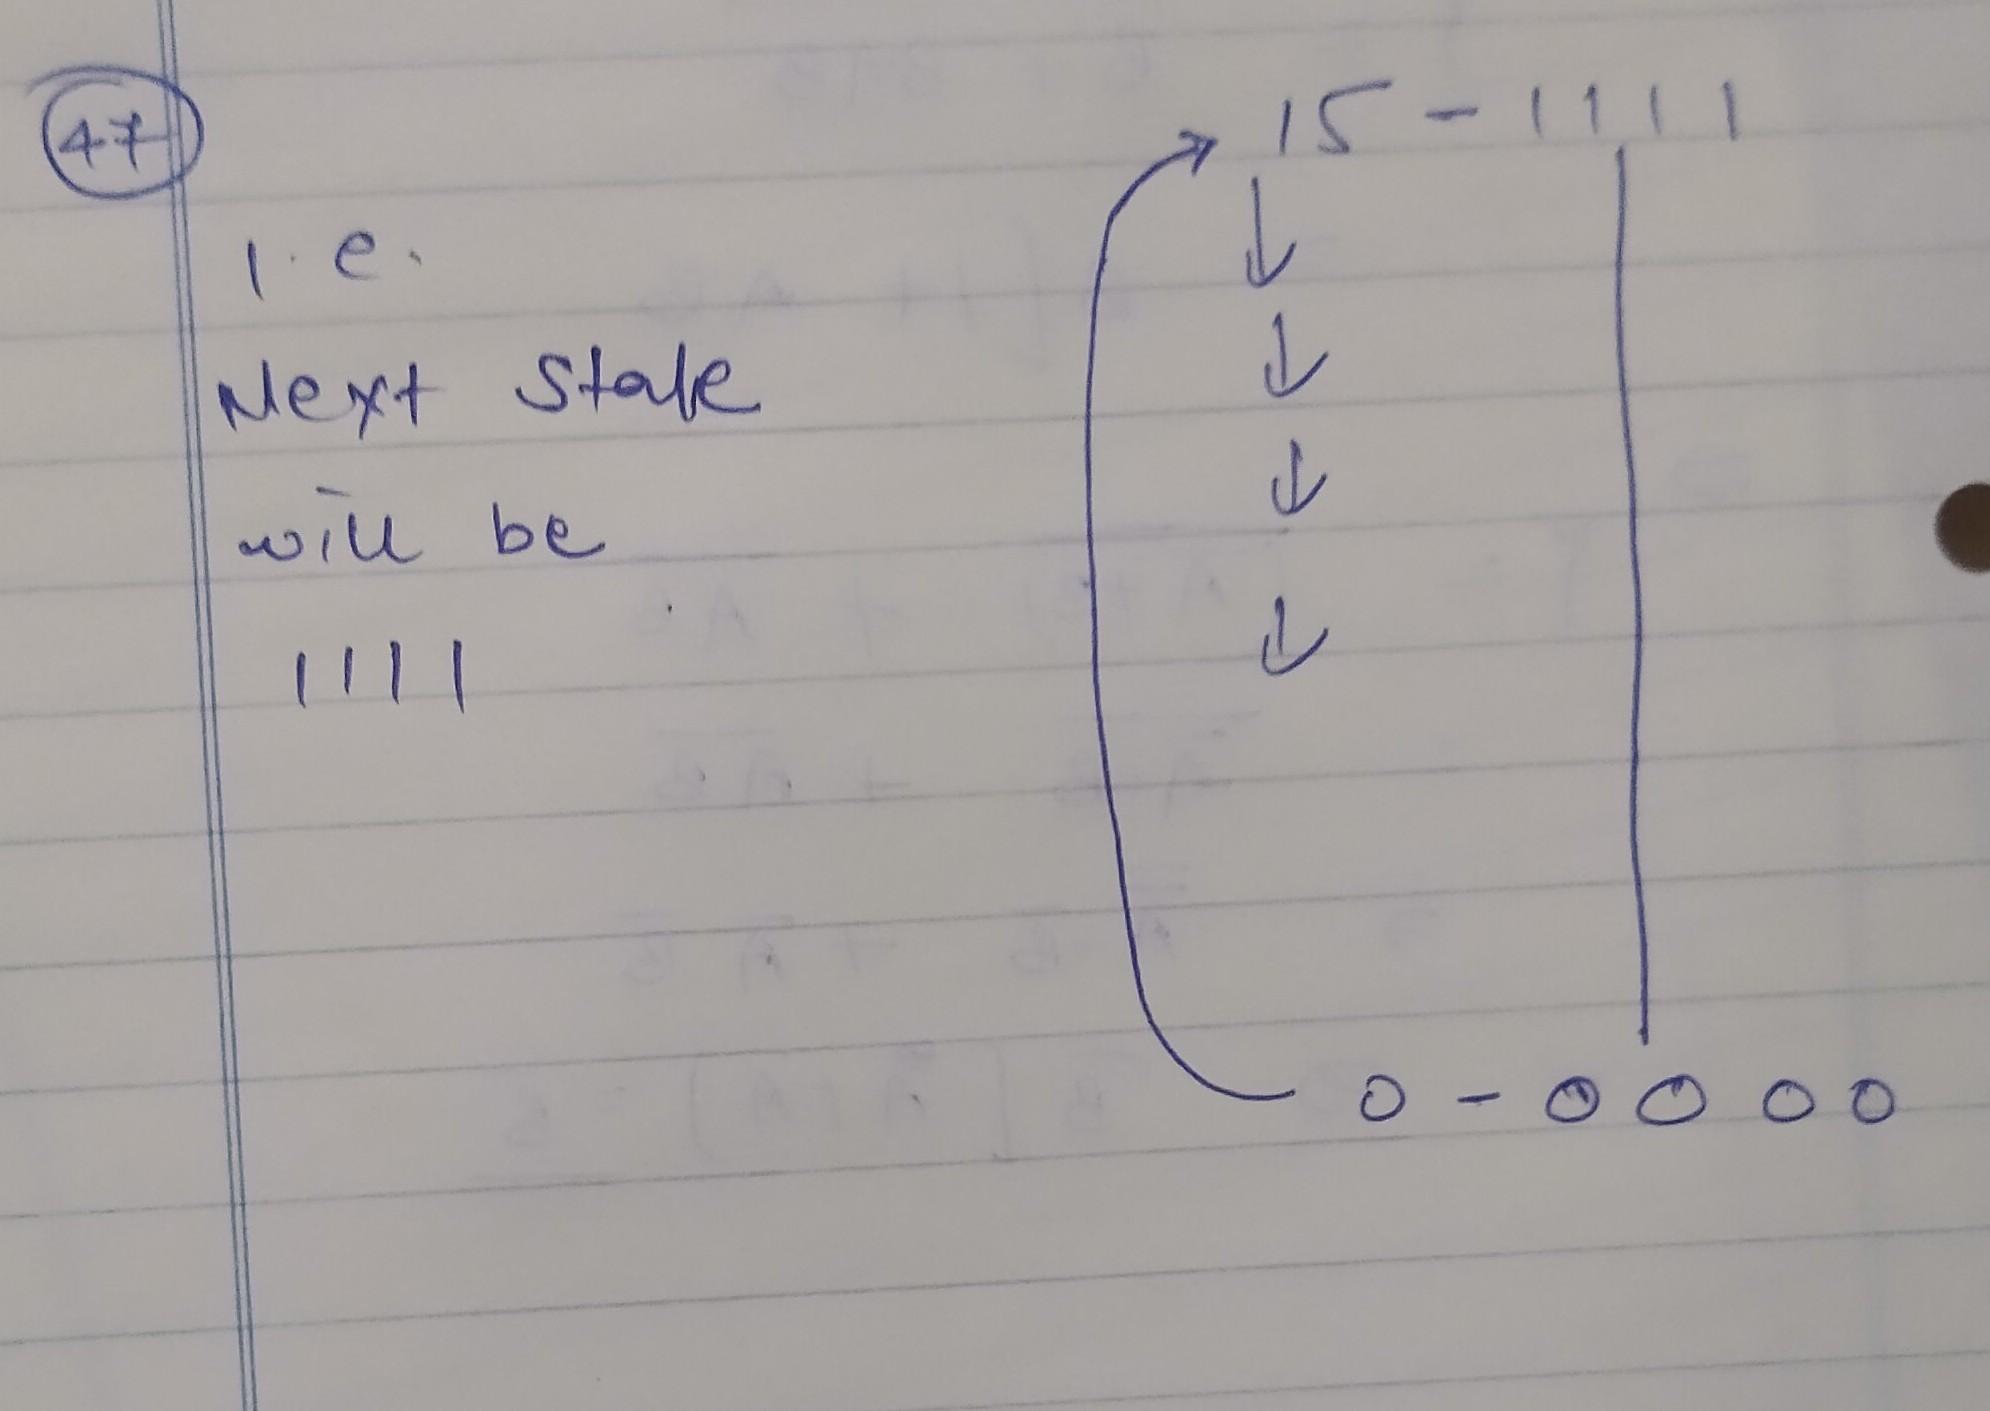 47
15 - 1111
i.e.
Next State
will be
1111
0 - 0000